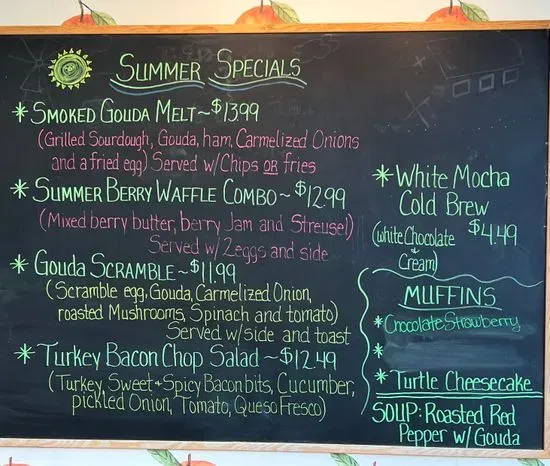 Summer Specials
* Smoked Gouda Melt ~ $13.99
(Grilled Sourdough, Gouda, ham, Carmelized Onions
and a fried egg) Served w/Chips OR fries
* Summer Berry Waffle Combo ~ $12.99
(Mixed berry butter, berry Jam and Streusel)
Served w/ 2 eggs and side
* Gouda Scramble ~ $11.99
(Scramble egg, Gouda, Carmelized Onion,
roasted Mushrooms, Spinach and tomato)
Served w/side and toast
* Turkey Bacon Chop Salad ~ $12.49
(Turkey, Sweet + Spicy Bacon bits, Cucumber,
pickled Onion, Tomato, Queso Fresco)
* White Mocha
Cold Brew
(white Chocolate $4.49
+
Cream)
Muffins
* Chocolate Strawberry
*
* Turtle Cheesecake
Soup: Roasted Red
Pepper w/ Gouda